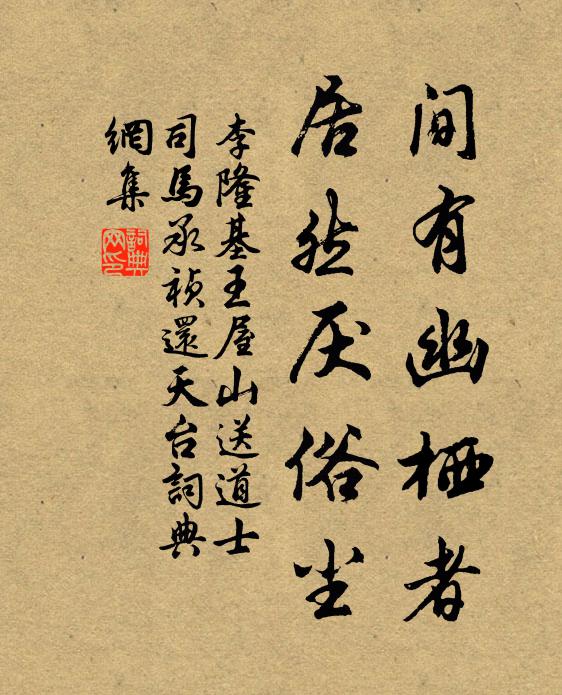 间有幽栖者
居然厌俗尘
李隆基王屋山送道士
司馬承禎還天台詞典
網集
詞典網印